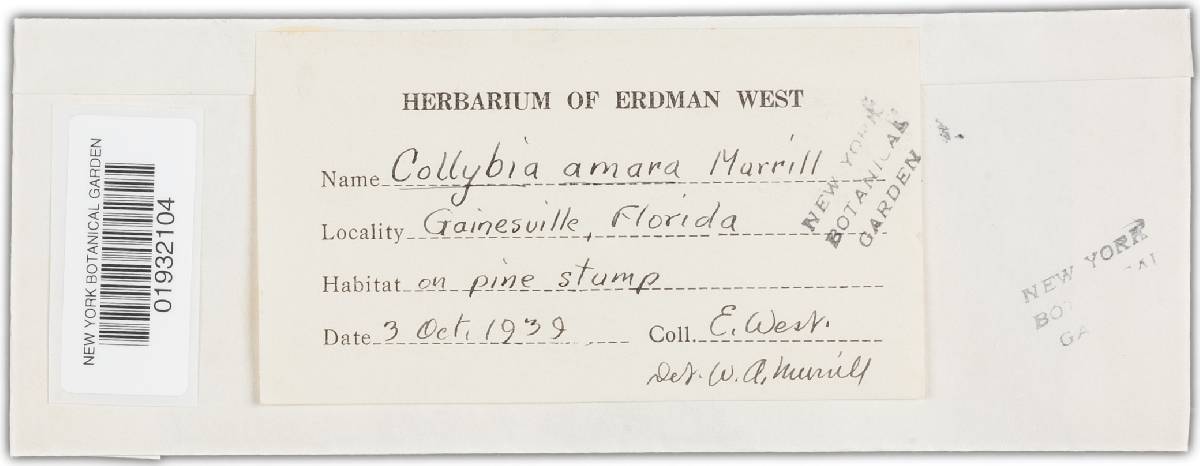 HERBARIUM OF ERDMAN WEST
Name Collybia amara Murrill
Locality Gainesville, Florida
Habitat on pine stump
Date 3 Oct. 1939 Coll. E. West.
Det. W. A. Murrill
NEW YORK
BOTANICAL
GARDEN
NEW YORK BOTANICAL GARDEN
01932104
NEW YORK